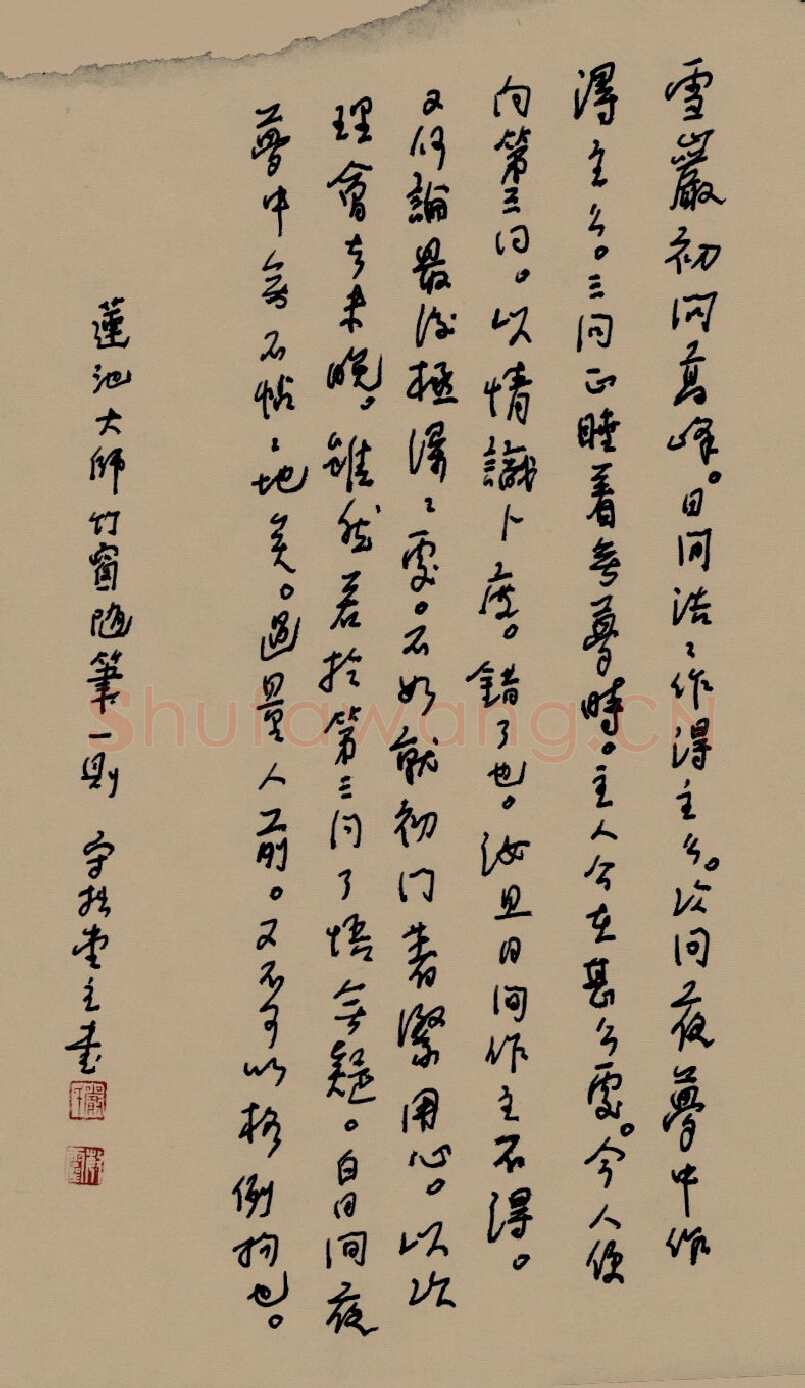 雪巖初問高峰。日間浩〻作得主么。次問夜夢中作
得主么。三問正睡着無夢時。主人公在甚么處。今人便
向第三問。以情識卜度。錯了也。汝且日間作主不得。
又何論最後極深〻處。不如就初門著緊用心。以次
理會去未晚。雖然若於第三問了悟無疑。白日間夜
夢中無不帖〻地矣。過量人前。又不可以格例拘也。
蓮池大師竹窗隨筆一則 守拙堂主書
Shufawang.CN